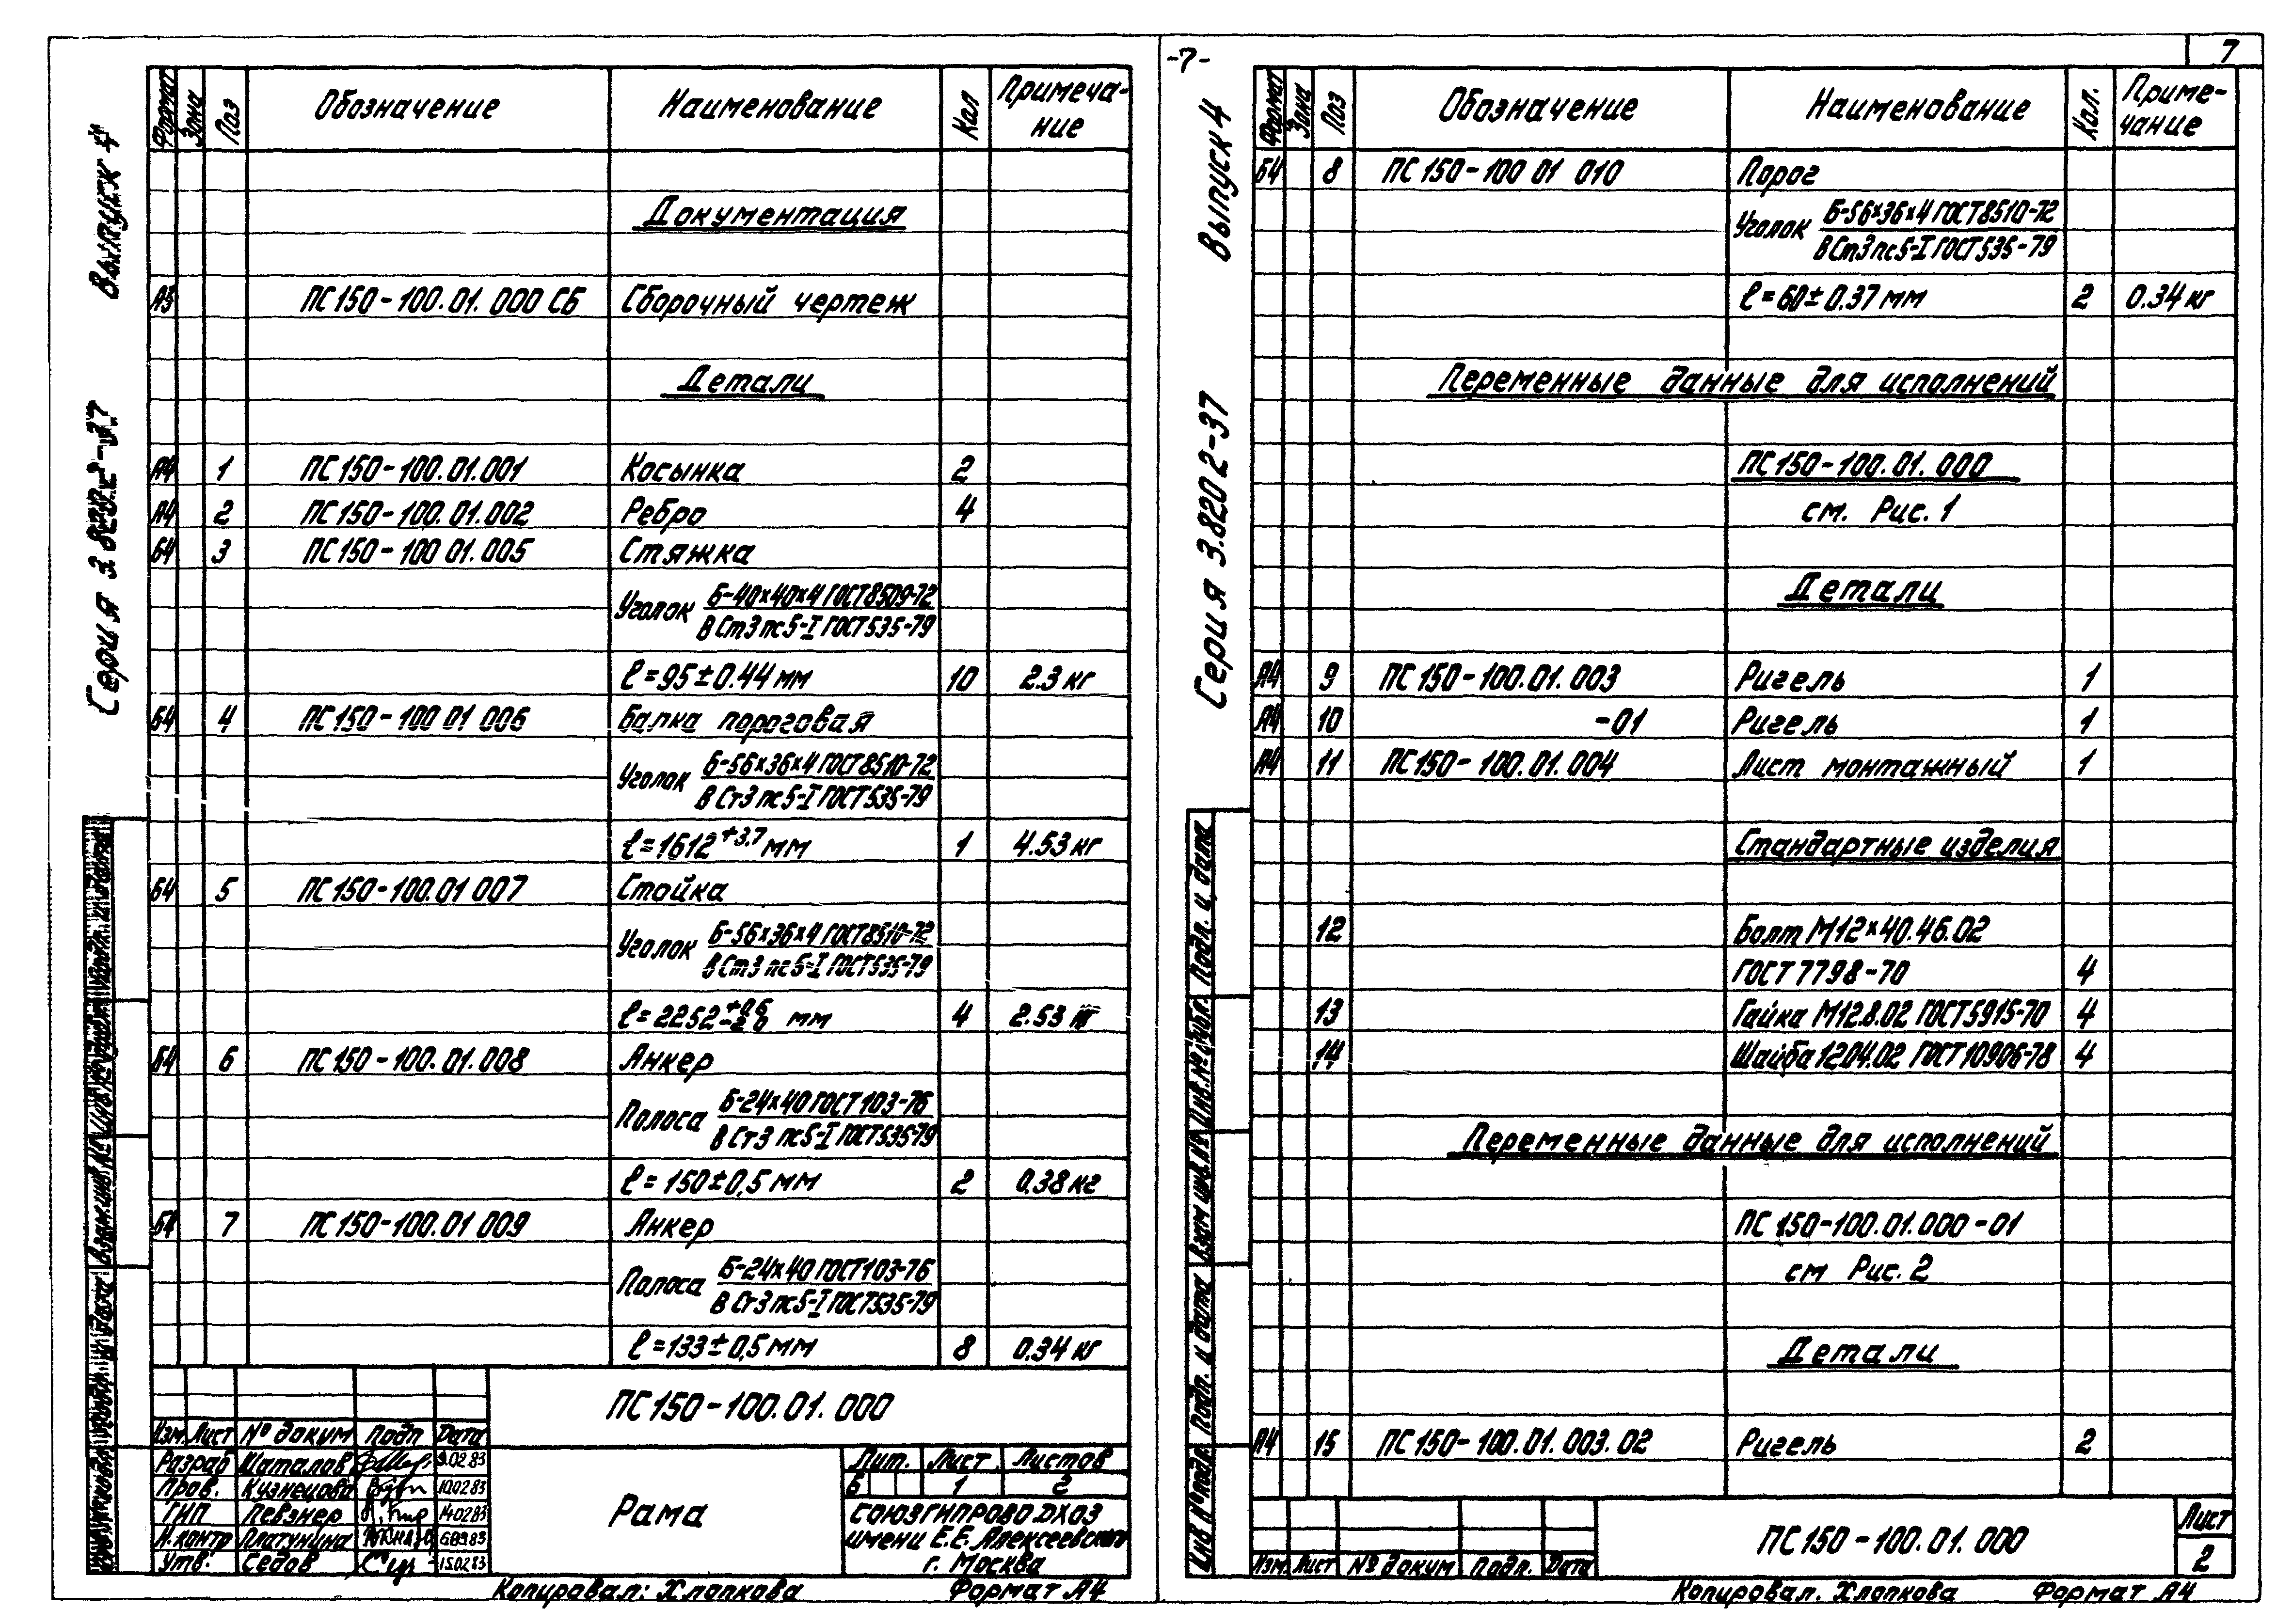 -7-
7
Серия 3.820.2-37 Выпуск 4
Формат Зона Поз Обозначение Наименование Кол Примеча-
ние
Документация
А3 ПС150-100.01.000 СБ Сборочный чертеж
Детали
А4 1 ПС150-100.01.001 Косынка 2
А4 2 ПС150-100.01.002 Ребро 4
Б4 3 ПС150-100 01.005 Стяжка
Уголок Б-40×40×4 ГОСТ8509-72
В Ст3 пс5-I ГОСТ535-79
ℓ=95±0.44 мм 10 2.3 кг
Б4 4 ПС150-100 01 006 Балка пороговая
Уголок Б-56×36×4 ГОСТ8510-72
В Ст3 пс5-I ГОСТ535-79
ℓ=1612 +3.7 мм 1 4.53 кг
Б4 5 ПС150-100.01 007 Стойка
Уголок Б-56×36×4 ГОСТ8510-72
В Ст3 пс5-I ГОСТ535-79
ℓ=2252 мм 4 2.53 кг
Б4 6 ПС150-100.01.008 Анкер
Полоса Б-24×40 ГОСТ103-76
В Ст3 пс5-I ГОСТ535-79
ℓ=150±0,5 мм 2 0.38 кг
Б4 7 ПС150-100.01 009 Анкер
Полоса Б-24×40 ГОСТ103-76
В Ст3 пс5-I ГОСТ535-79
ℓ=133±0,5 мм 8 0.34 кг
ПС150-100.01.000
Изм Лист № докум Подп Дата
Разраб Шаталов 9.02.83
Пров. Кузнецова 10.02.83
ГИП Певзнер 14.02.83
Н.контр Платунина
Утв. Седов 15.02.83
Рама
Лит. Лист Листов
Б 1 2
СОЮЗГИПРОВОДХОЗ
имени Е.Е. Алексеевского
г. Москва
Копировал: Хлопкова Формат А4
Серия 3.820 2-37 Выпуск 4
Формат Зона Поз Обозначение Наименование Кол. Приме-
чание
Б4 8 ПС150-100 01 010 Порог
Уголок Б-56×36×4 ГОСТ8510-72
В Ст3 пс5-I ГОСТ535-79
ℓ=60±0.37 мм 2 0.34 кг
Переменные данные для исполнений
ПС150-100.01.000
см. Рис. 1
Детали
А4 9 ПС150-100.01.003 Ригель 1
А4 10 -01 Ригель 1
А4 11 ПС150-100.01.004 Лист монтажный 1
Стандартные изделия
12 Болт М12×40.46.02
ГОСТ 7798-70 4
13 Гайка М12.8.02 ГОСТ5915-70 4
14 Шайба 12.04.02 ГОСТ10906-78 4
Переменные данные для исполнений
ПС 150-100.01.000-01
см Рис. 2
Детали
А4 15 ПС150-100.01.003.02 Ригель 2
Инв № подл. Подп. и дата Взам инв.№ Инв.№ дубл. Подп. и дата
Изм Лист № докум Подп. Дата
ПС150-100.01.000
Лист
2
Копировал. Хлопкова Формат А4